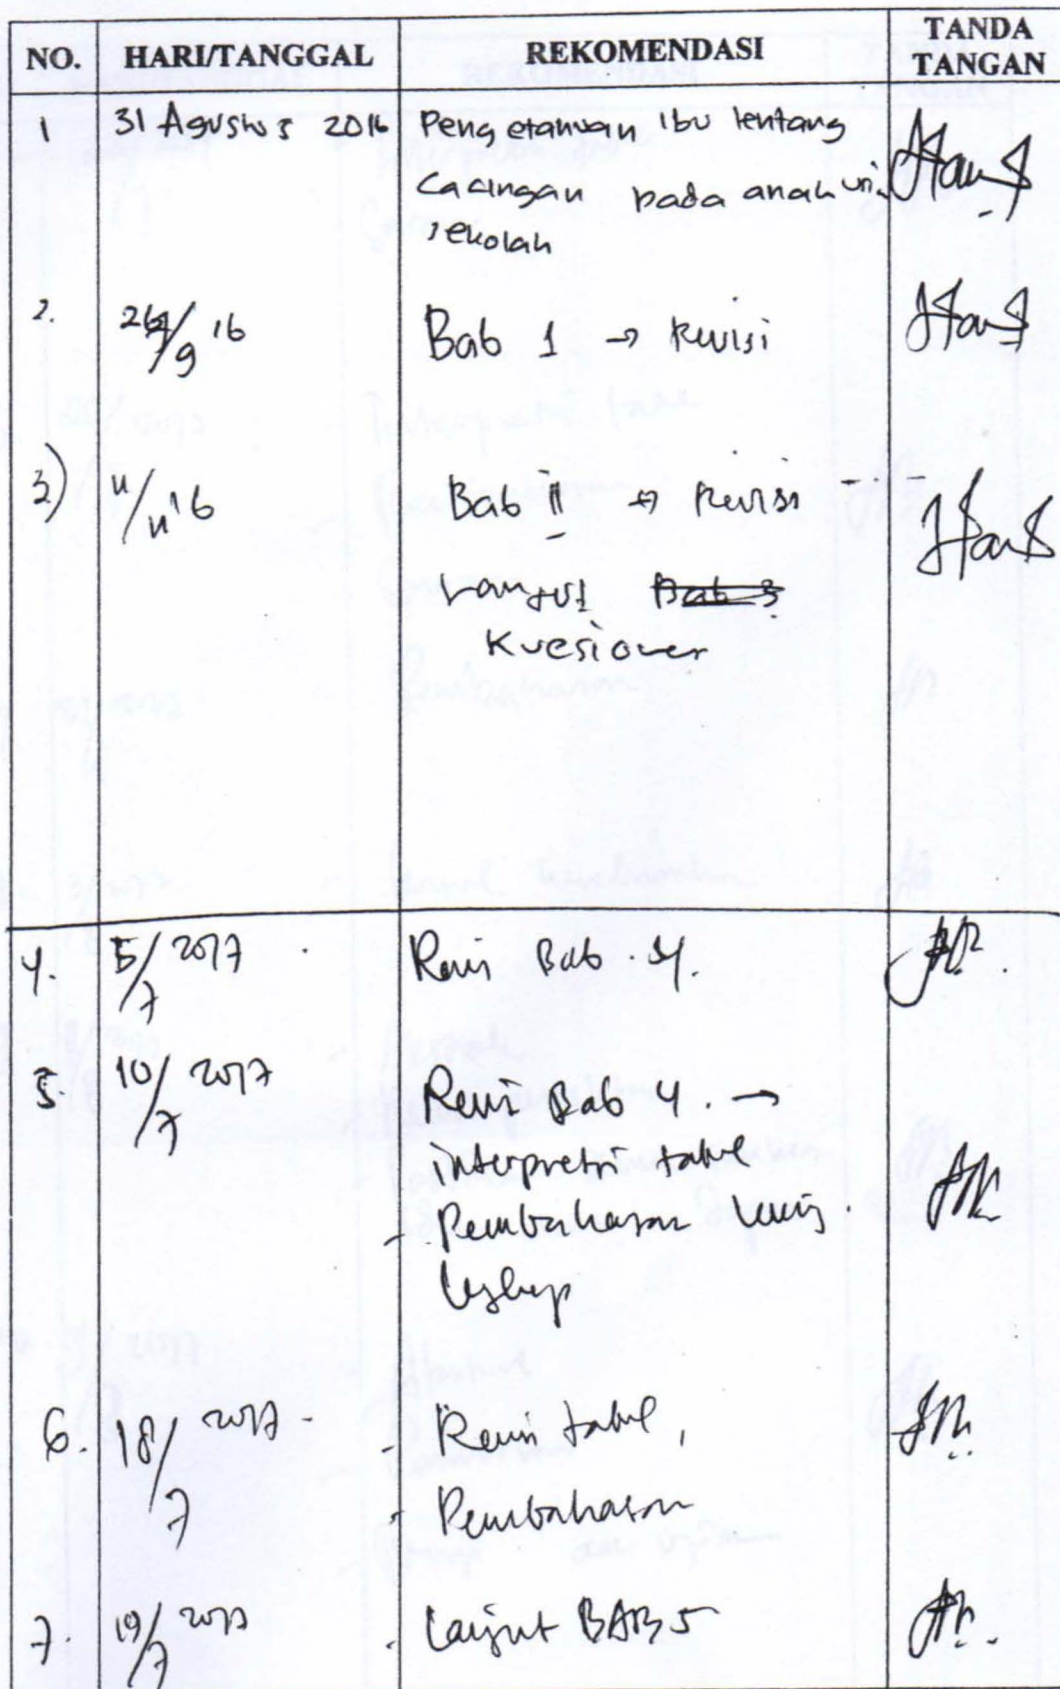 NO. HARI/TANGGAL REKOMENDASI TANDA TANGAN
1 31 Agustus 2016 Pengetahuan ibu tentang
cacingan pada anak usia
sekolah
2. 26/9 16 Bab 1 → Revisi
3) 11/11 16 Bab II → Revisi
Lanjut Bab 3
Kuesioner
4. 5/7 2017 Revisi Bab 4.
5. 10/7 2017 Revisi Bab 4. →
interpretasi tabel
- Pembahasan
6. 18/7 2017 - - Revisi tabel,
- Pembahasan
7. 19/7 2017 - Lanjut BAB 5